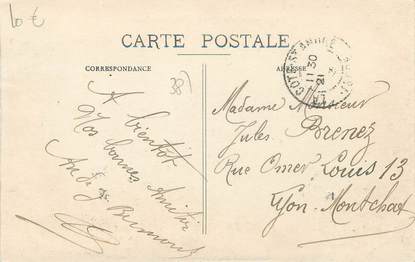 10 €
CARTE POSTALE
CORRESPONDANCE
ADRESSE
38
COTE-ST ANDRÉ
11 30
21
A bientôt
Nos bonnes Amitiés
Madame Monsieur
Jules Brenez
Rue Omer Louis 13
Lyon-Montchat